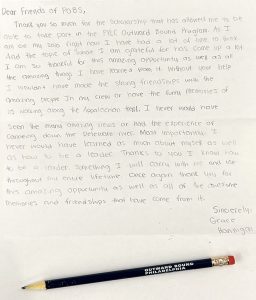 Dear Friends of POBS,
Thank you so much for the scholarship that has allowed me to be
able to take part in the FYLC Outward Bound Program. As I
am on my solo right now I have had a lot of time to think
And the topic of things I am grateful for has come up a lot
I am so thankful for this amazing opportunity as well as all
the amazing things I have learned from it. Without your help
I wouldn't have made the strong friendships with the
amazing people in my crew or have the funny memories of
us walking along the Appalachian trail. I never would have
seen the many amazing views or had the experience of
canoeing down the Delaware river. Most importantly I
never would have learned as much about myself as well
as how to be a leader. Thanks to you I know how
to be a leader. Something I will carry with me and use
throughout my entire lifetime. Once again thank you for
this amazing opportunity as well as all of the awesome
memories and friendships that have come from it.
Sincerely,
Grace
OUTWARD BOUND
PHILADELPHIA